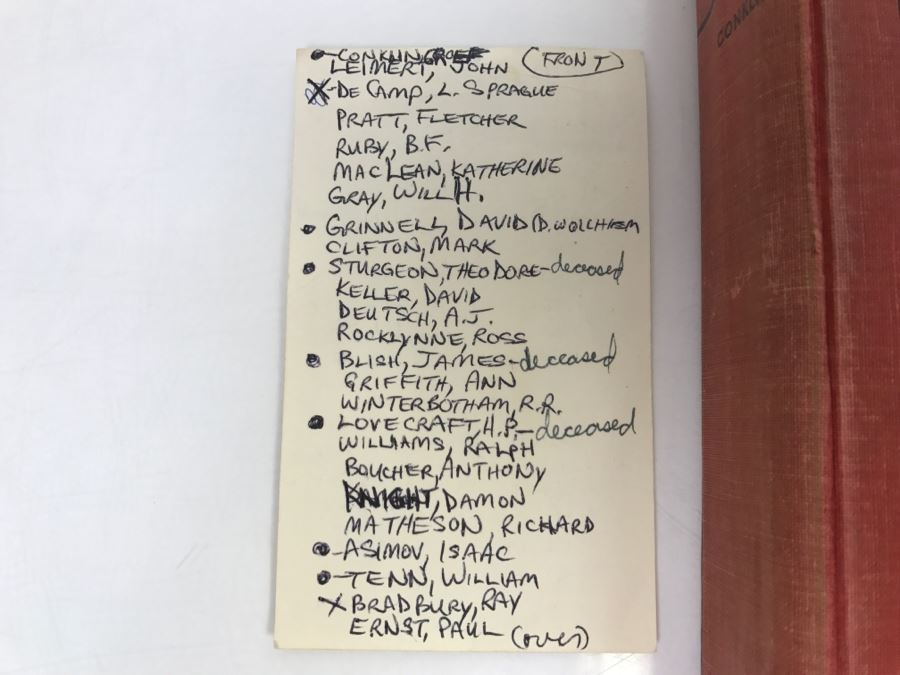 CONKLIN, GROFF (FRONT)
LEIMERT, JOHN
X-DE CAMP, L. SPRAGUE
PRATT, FLETCHER
RUBY, B.F.
MACLEAN, KATHERINE
GRAY, WILL H.
GRINNELL, DAVID D. WOLLHIEM
CLIFTON, MARK
STURGEON, THEODORE-deceased
KELLER, DAVID
DEUTSCH, A.J.
ROCKLYNNE, ROSS
BLISH, JAMES-deceased
GRIFFITH, ANN
WINTERBOTHAM, R.R.
LOVECRAFT, H.P.-deceased
WILLIAMS, RALPH
BOUCHER, ANTHONY
KNIGHT, DAMON
MATHESON, RICHARD
-ASIMOV, ISAAC
-TENN, WILLIAM
X BRADBURY, RAY
ERNST, PAUL (over)